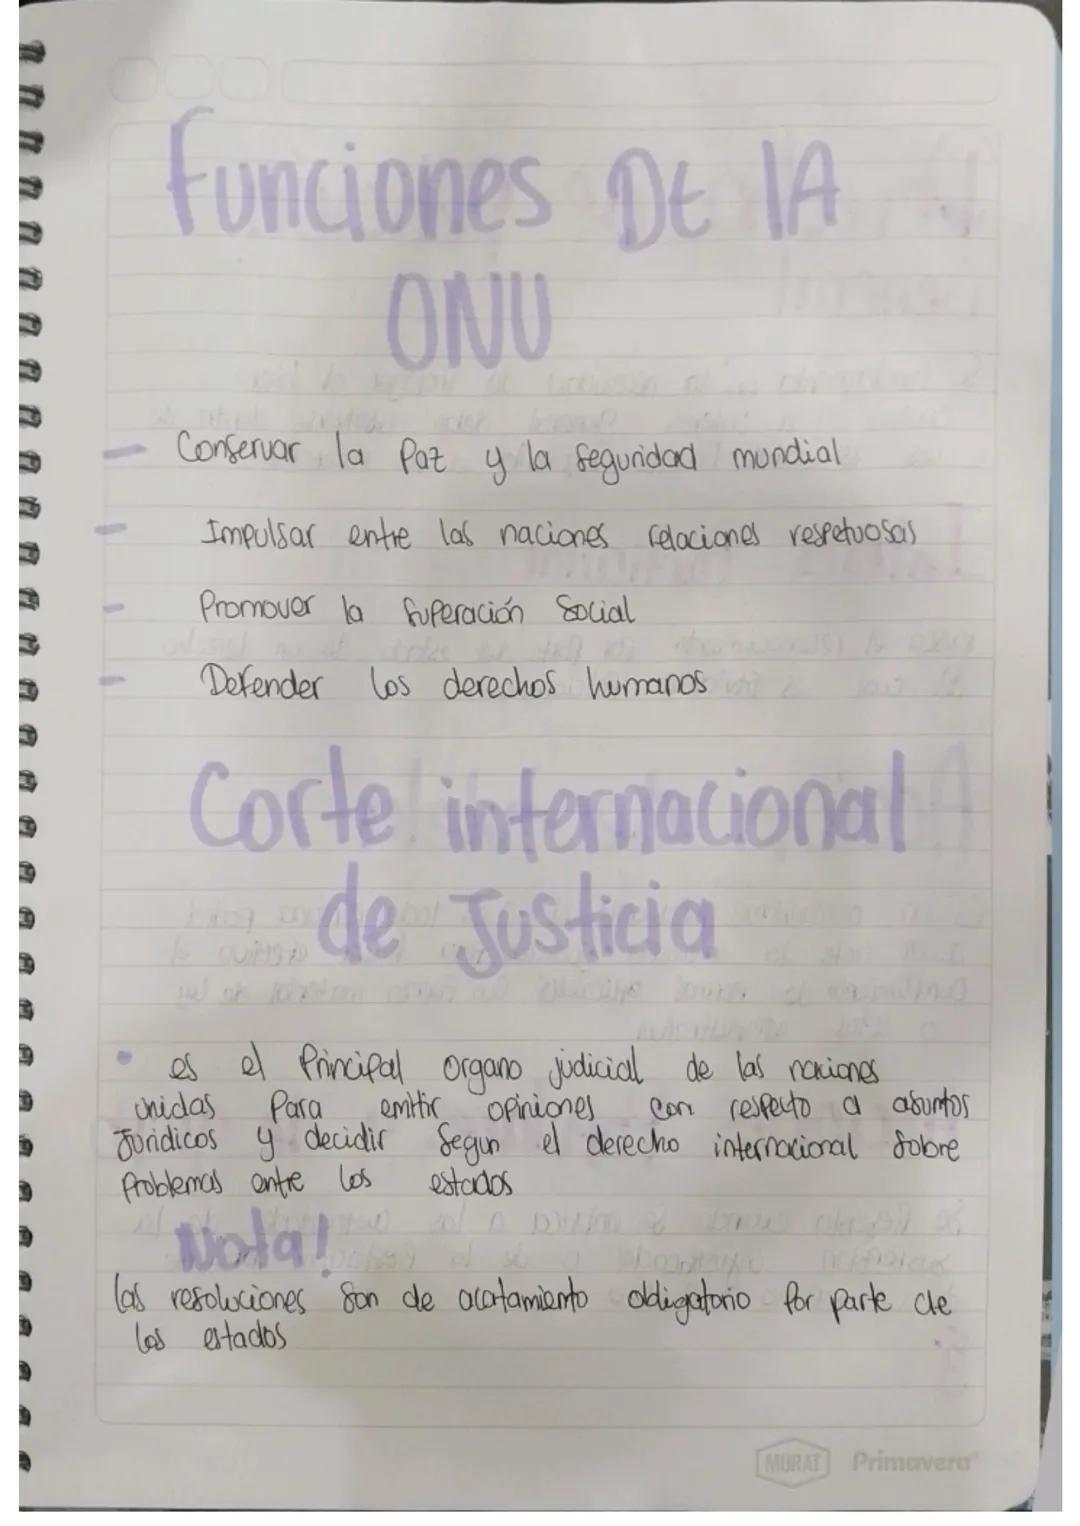 Funciones De lA
ONU
- Conservar la Paz y la seguridad mundial
- Impulsar entre las naciones relaciones respetuosas
- Promover la superación Social
- Defender los derechos humanos
Corte internacional
de Justicia
• es el Principal organo judicial de las naciones
unidas Para emitir opiniones con respecto a asuntos
Juridicos y decidir Segun el derecho internacional sobre
Problemas entre los estados
Nota!
las resoluciones son de acatamiento obligatorio por parte de
los estados
MORAT Primavera